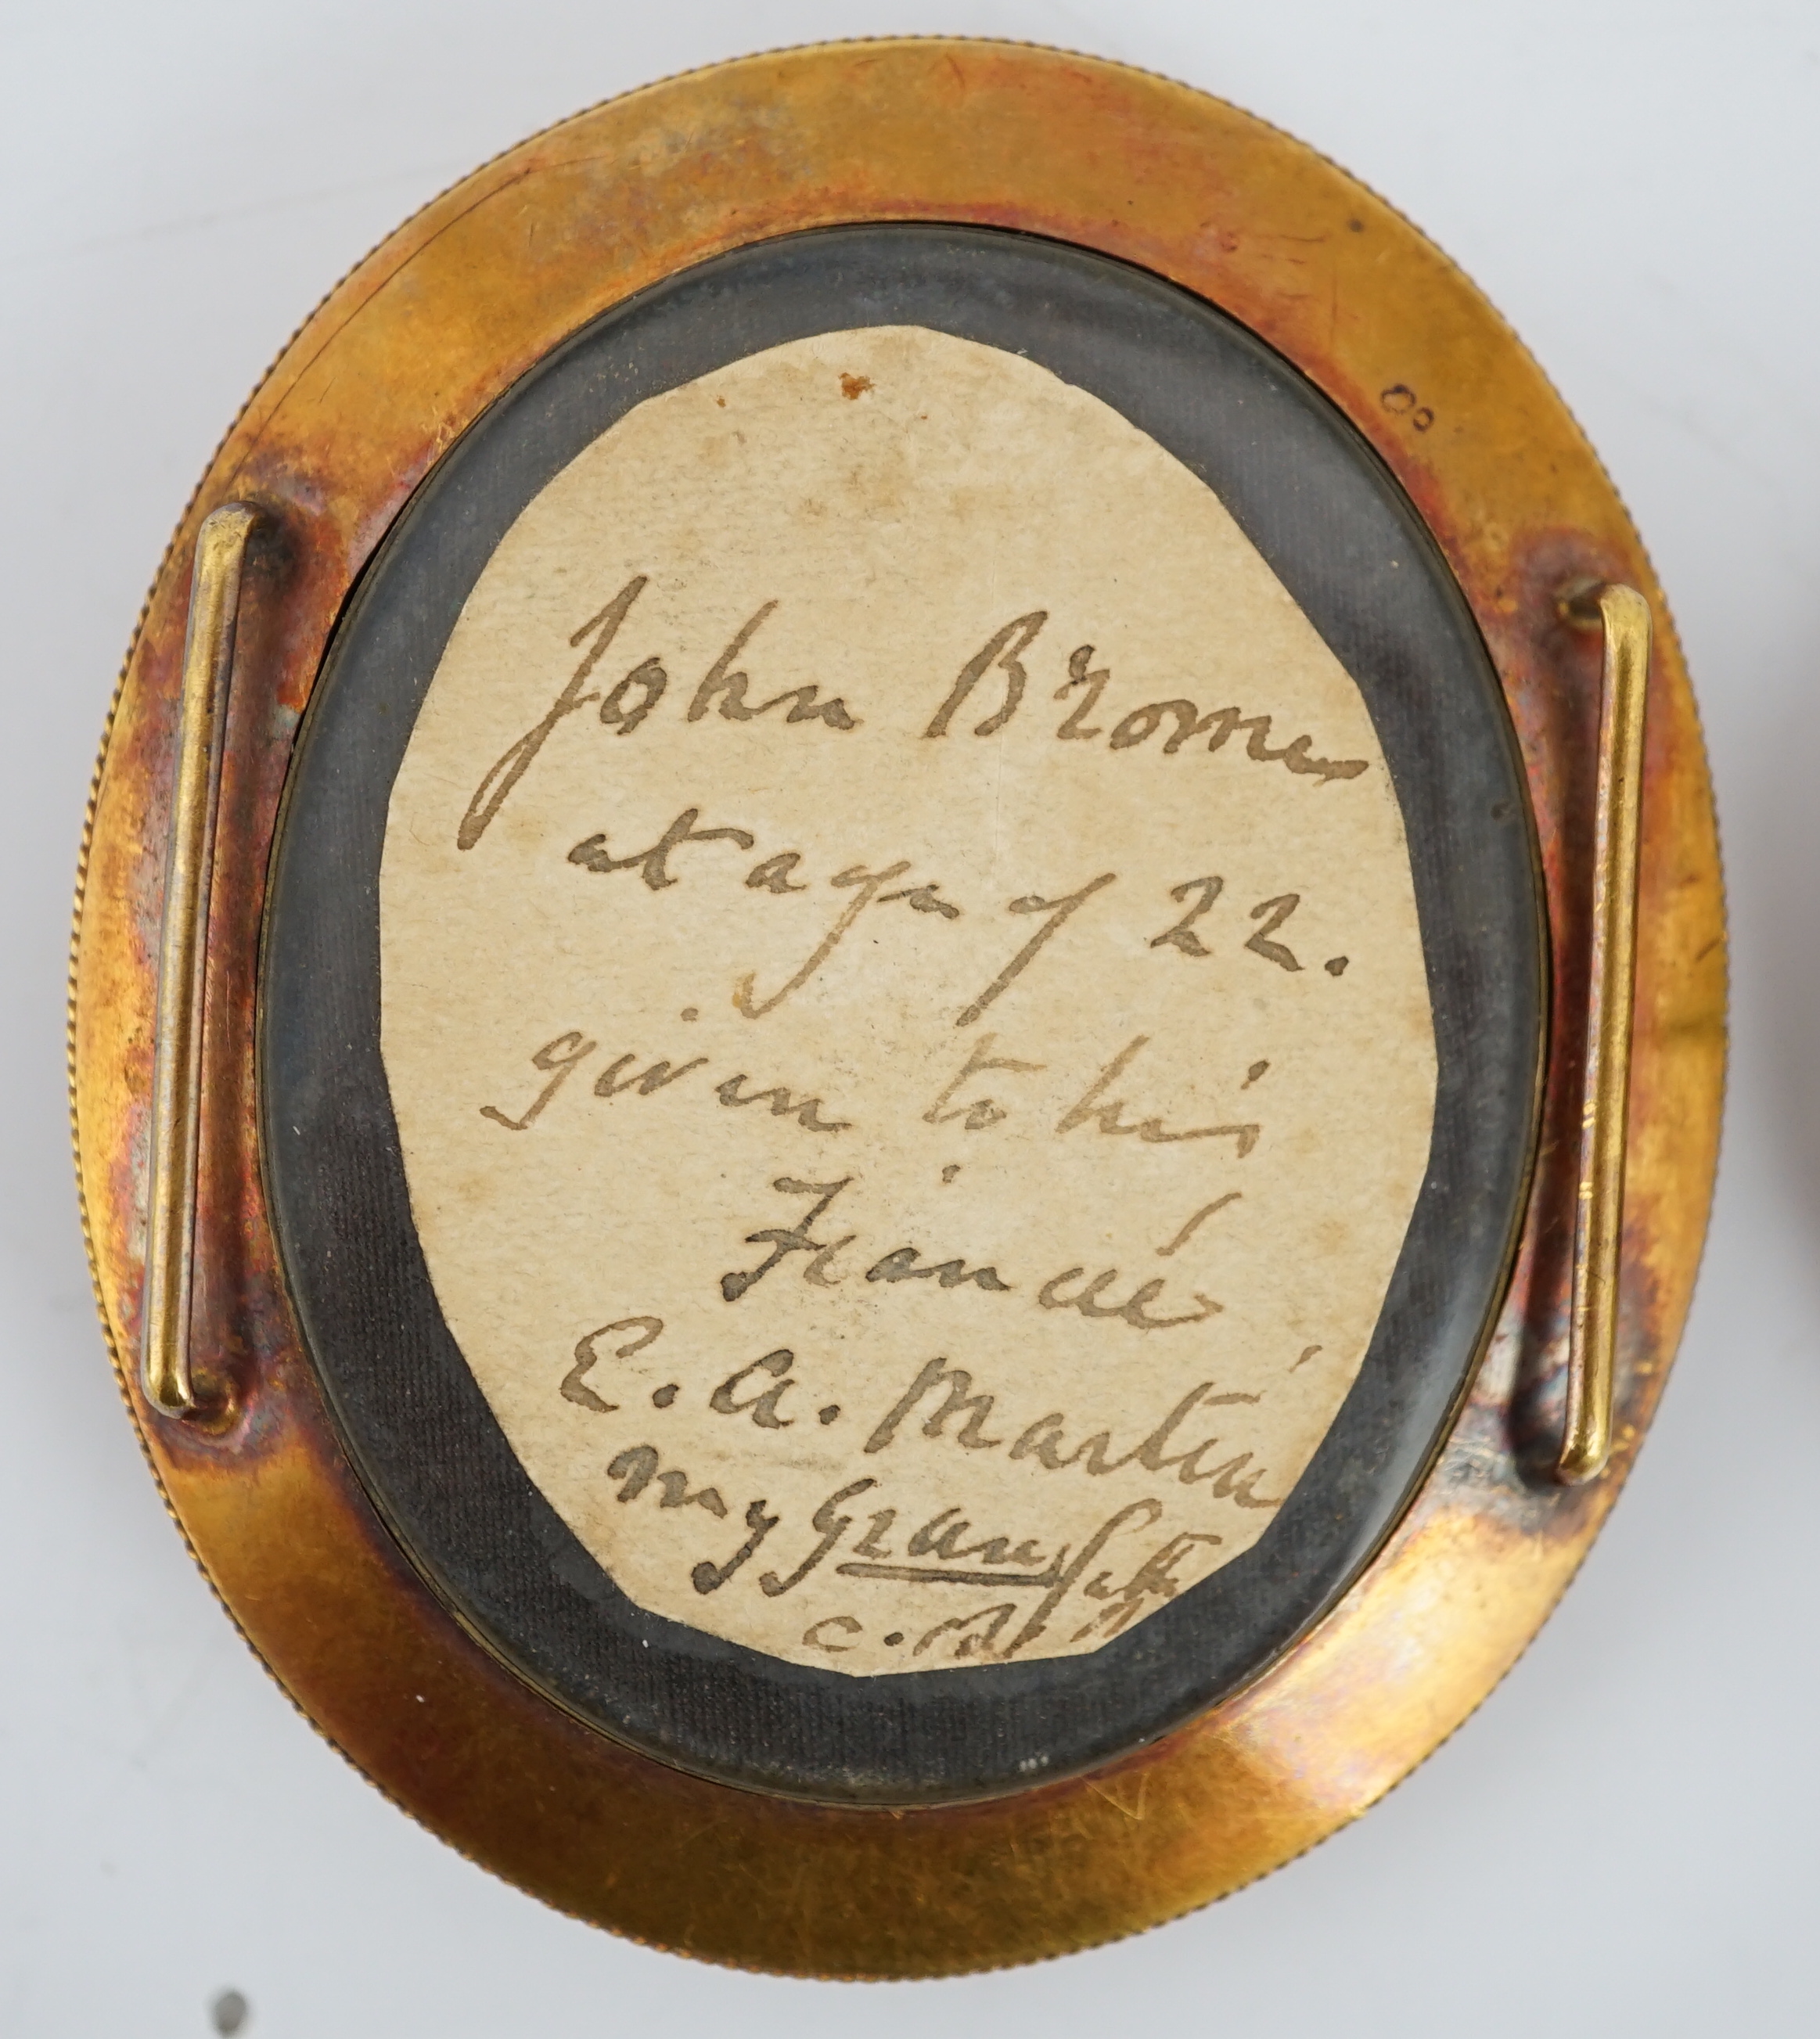 John Brome
at age of 22.
given to his
Fiancé
E. A. Martin
my Grandfather
C.